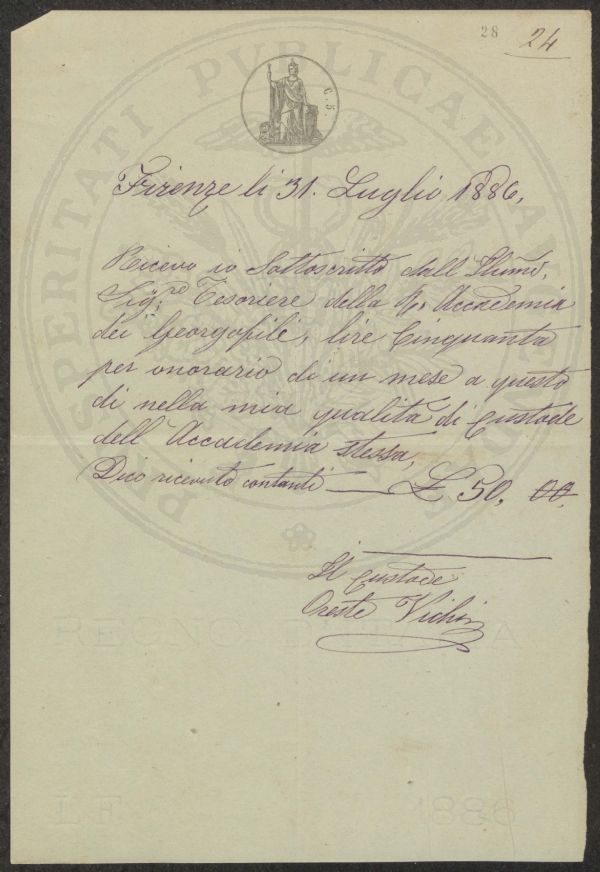 28
24
C. 5.
PROSPERITATI PUBLICAE
Firenze li 31. Luglio 1886.
Ricevo io Sottoscritto dall' Illmo.
Sigre. Tesoriere della R. Accademia
dei Georgofili, lire Cinquanta
per onorario di un mese a questo
dì nella mia qualità di Custode
dell' Accademia stessa,
Dico ricevuto contanti — £ 50, 00.
Il Custode
Oreste
REGNO D'ITALIA
1886